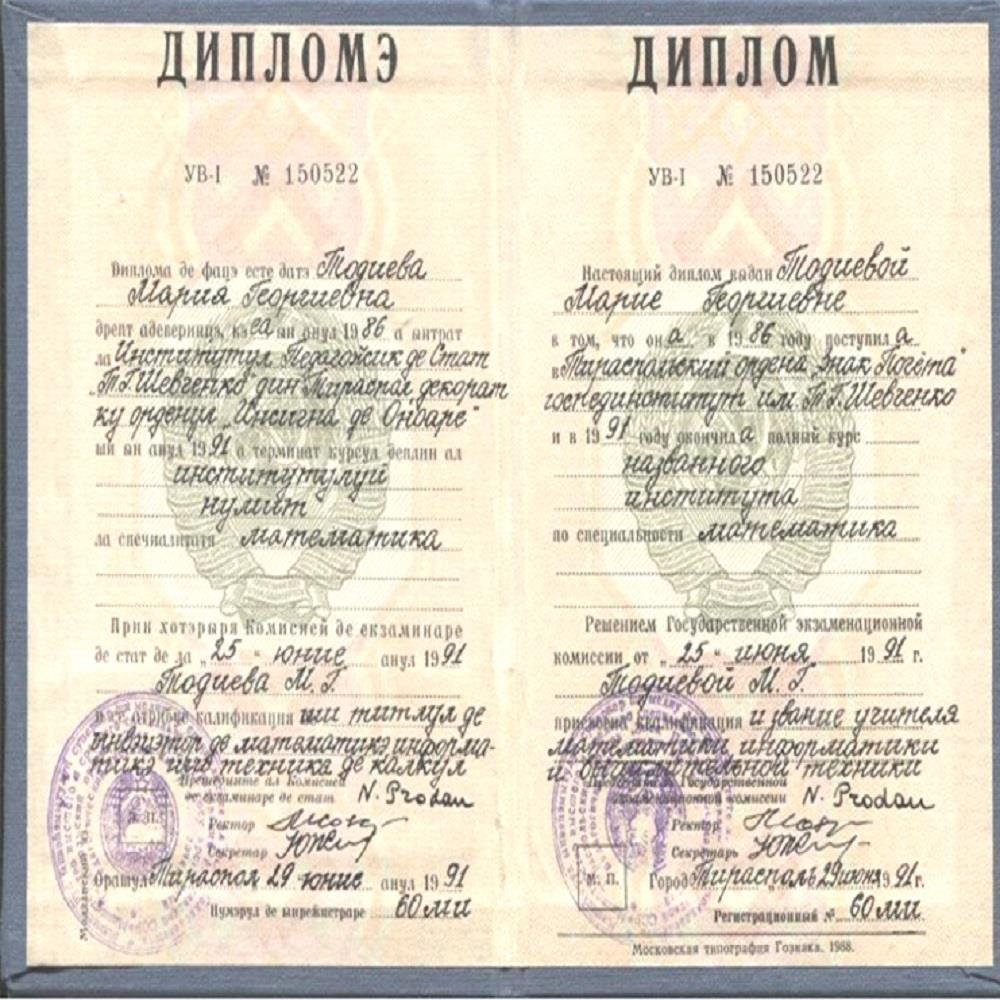 ДИПЛОМЭ
УВ-I № 150522
Диплома де фацэ есте датэ Тодиева
Мария Георгиевна
дрепт адеверинцэ, кэ еа ын анул 1986 а ынтрат
ла Институтул Педагожик де Стат
"Т.Г. Шевченко" дин Тираспол декорат
ку орденул "Инсигна де Оноаре"
ши ын анул 1991 а терминат курсул деплин ал
институтулуй
нумит
ла специалитатя математика
Прин хотэрыря Комисией де екзаминаре
де стат де ла "25" юние анул 1991
Тодиева М. Г.
и се атрибуе калификация ши титлул де
ынвэцэтор де математикэ, информа-
тикэ ши техника де калкул
Прешединте ал Комисией
де екзаминаре де стат N. Prodan
Ректор
Секретар
Орашул Тираспол 29 юние анул 1991
Нумэрул де ынрежистраре 60 ми
ДИПЛОМ
УВ-I № 150522
Настоящий диплом выдан Тодиевой
Марие Георгиевне
в том, что она в 1986 году поступила
в Тираспольский ордена "Знак Почёта"
госпединститут им. Т.Г. Шевченко
и в 1991 году окончила полный курс
названного
института
по специальности математика
Решением Государственной экзаменационной
комиссии от "25" июня 1991 г.
Тодиевой М. Г.
присвоена квалификация и звание учителя
математики, информатики
и вычислительной техники
Председатель Государственной
экзаменационной комиссии N. Prodan
Ректор
Секретарь
М. П.
Город Тирасполь 29 июня 1991 г.
Регистрационный № 60 ми
Московская типография Гознака. 1988.